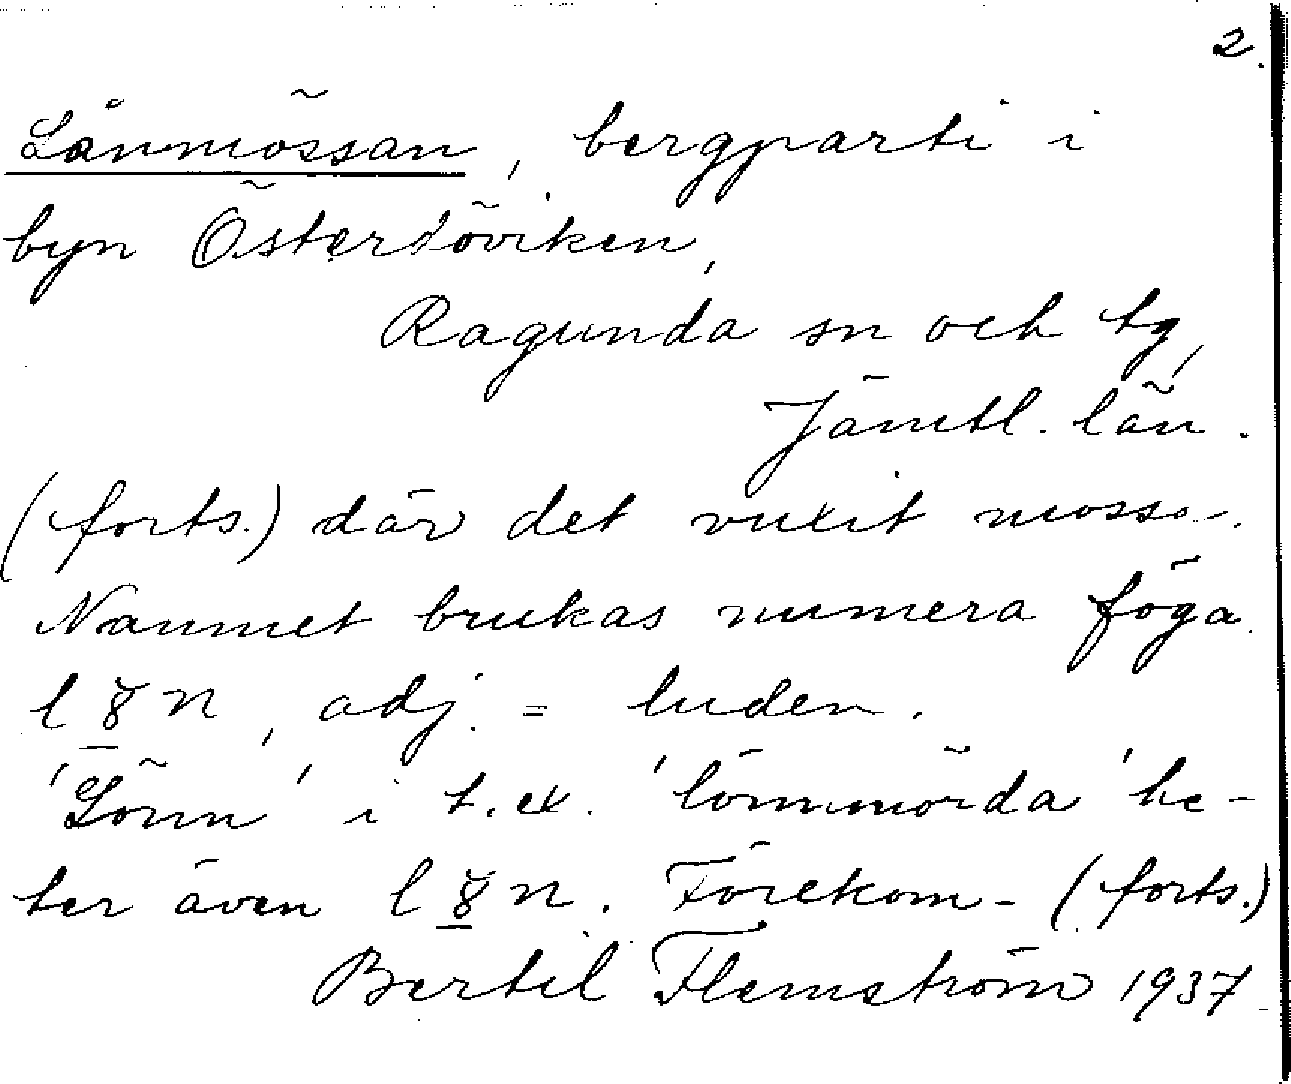 2.
Lånmössan, bergparti i
byn Österlöviken,
Ragunda sn och tg,
Jämtl. län.
(forts.) där det vuxit mossa.
Namnet brukas numera föga.
adj. = luden.
'Lönn' i t.ex. 'lönnmörda' he-
ter även Förekom- (forts.)
Bertil Flemström 1937